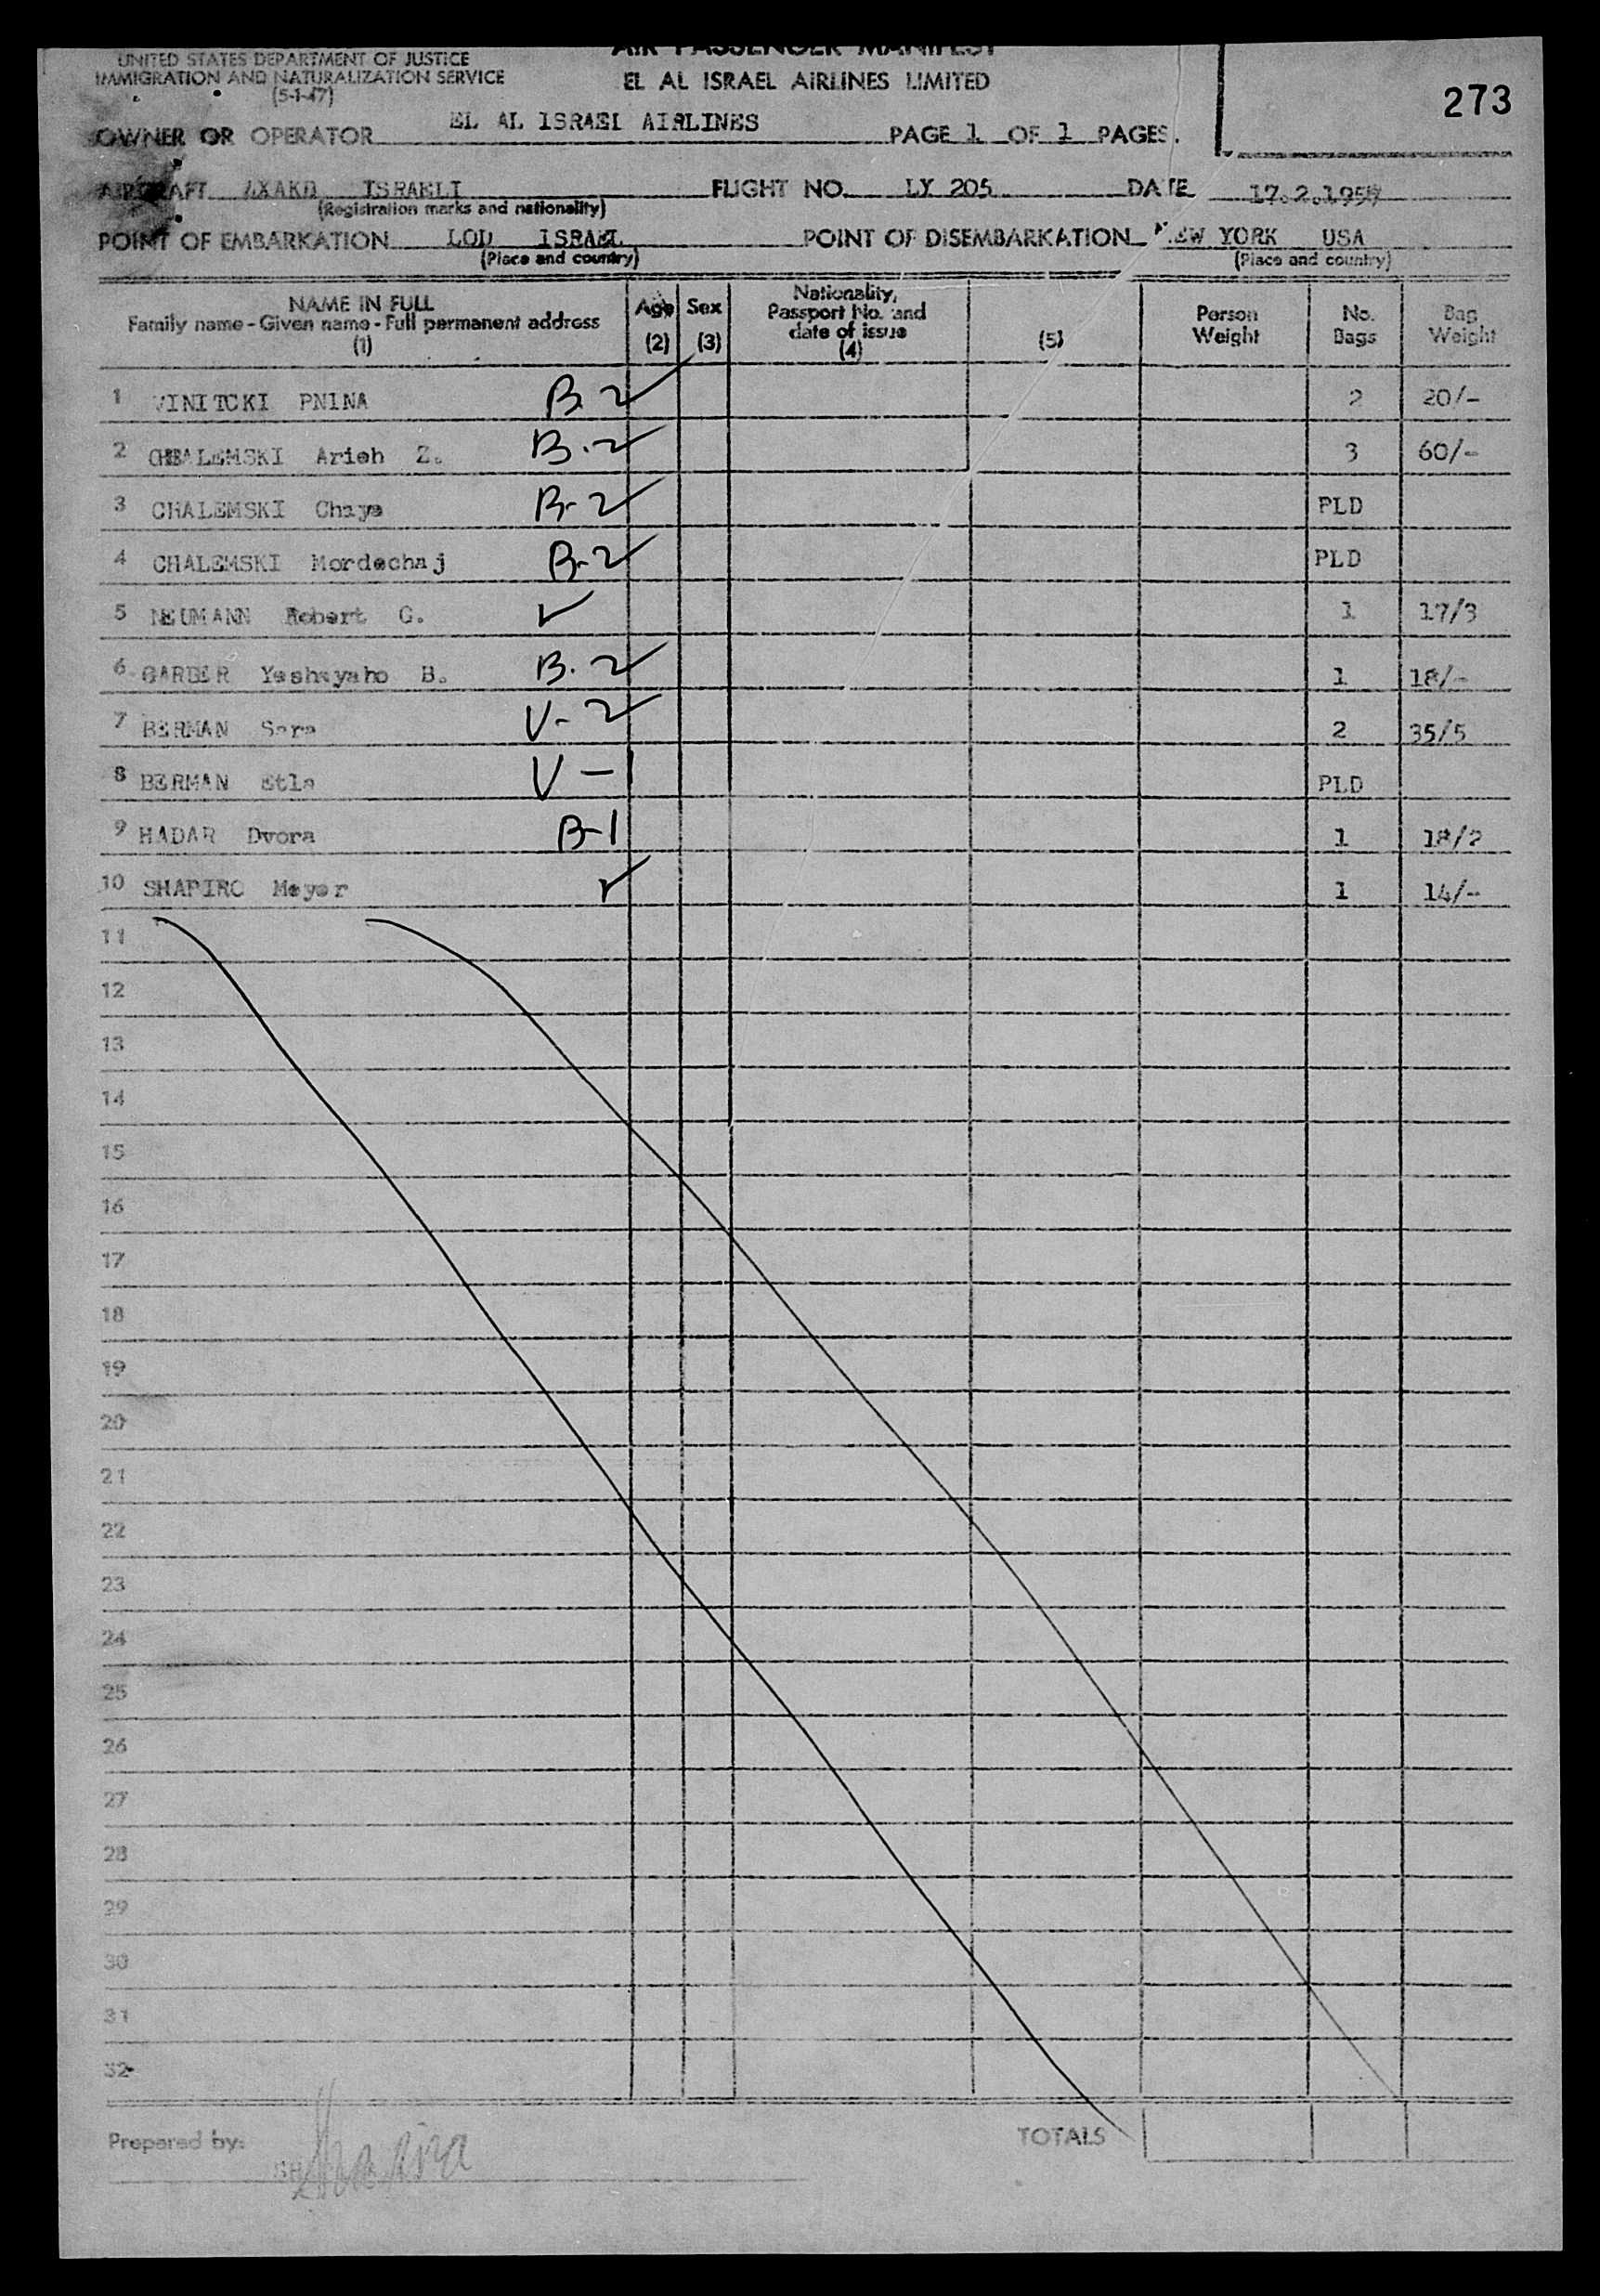 AIR PASSENGER MANIFEST
UNITED STATES DEPARTMENT OF JUSTICE
IMMIGRATION AND NATURALIZATION SERVICE
(5-1-47)
EL AL ISRAEL AIRLINES LIMITED
273
OWNER OR OPERATOR EL AL ISRAEL AIRLINES PAGE 1 OF 1 PAGES.
AIRCRAFT 4XAKD ISRAELI FLIGHT NO. LY 205 DATE 17.2.1957
(Registration marks and nationality)
POINT OF EMBARKATION LOD ISRAEL POINT OF DISEMBARKATION NEW YORK USA
(Place and country) (Place and country)
NAME IN FULL
Family name - Given name - Full permanent address
(1)
Age
(2)
Sex
(3)
Nationality,
Passport No. and
date of issue
(4)
(5)
Person
Weight
No.
Bags
Bag
Weight
1 VINITCKI PNINA B-2 ✓ 2 20/-
2 CHALEMSKI Arieh Z. B-2 ✓ 3 60/-
3 CHALEMSKI Chaya B-2 ✓ PLD
4 CHALEMSKI Mordechaj B-2 ✓ PLD
5 NEUMANN Robert G. ✓ 1 17/3
6 GARBER Yeshayaho B. B-2 ✓ 1 18/-
7 BERMAN Sara V-2 ✓ 2 35/5
8 BERMAN Etla V-1 PLD
9 HADAR Dvora B-1 1 18/2
10 SHAPIRO Meyer ✓ 1 14/-
11
12
13
14
15
16
17
18
19
20
21
22
23
24
25
26
27
28
29
30
31
32
Prepared by: TOTALS